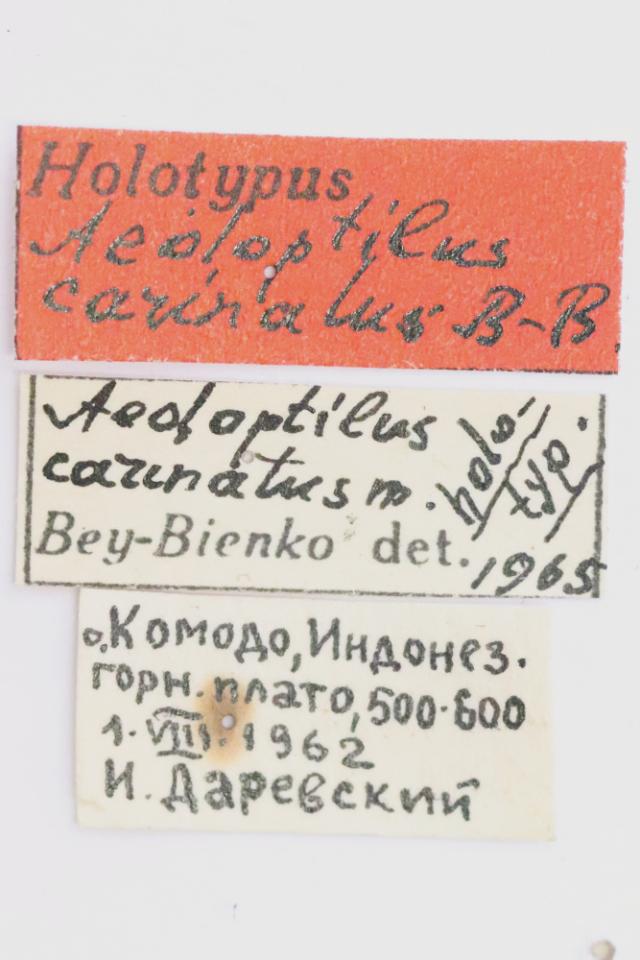 Holotypus
Aeoloptilus
carinatus B-B
Aeoloptilus
carinatus m. holo-
typ.
Bey-Bienko det. 1965
о. Комодо, Индонез.
горн. плато, 500-600
1. VIII. 1962
И. Даревский